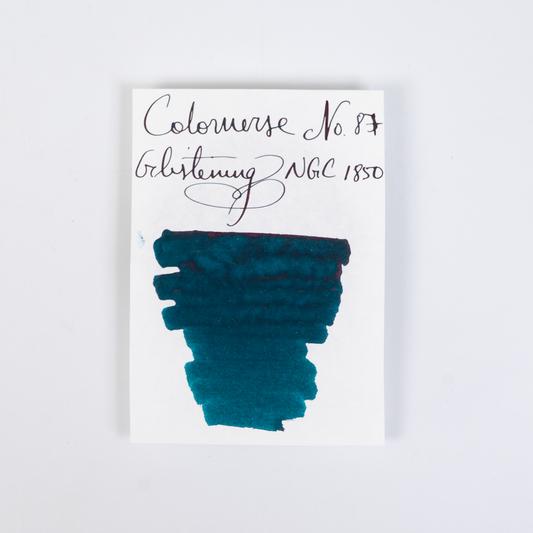 Colorverse No. 87
Glistening NGC 1850